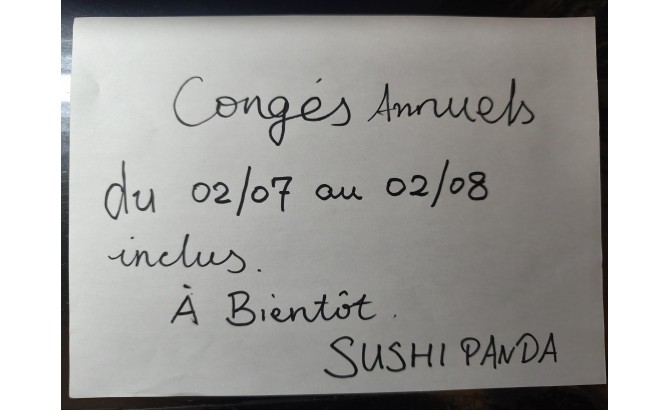 Congés Annuels
du 02/07 au 02/08
inclus.
À Bientôt.
SUSHI PANDA